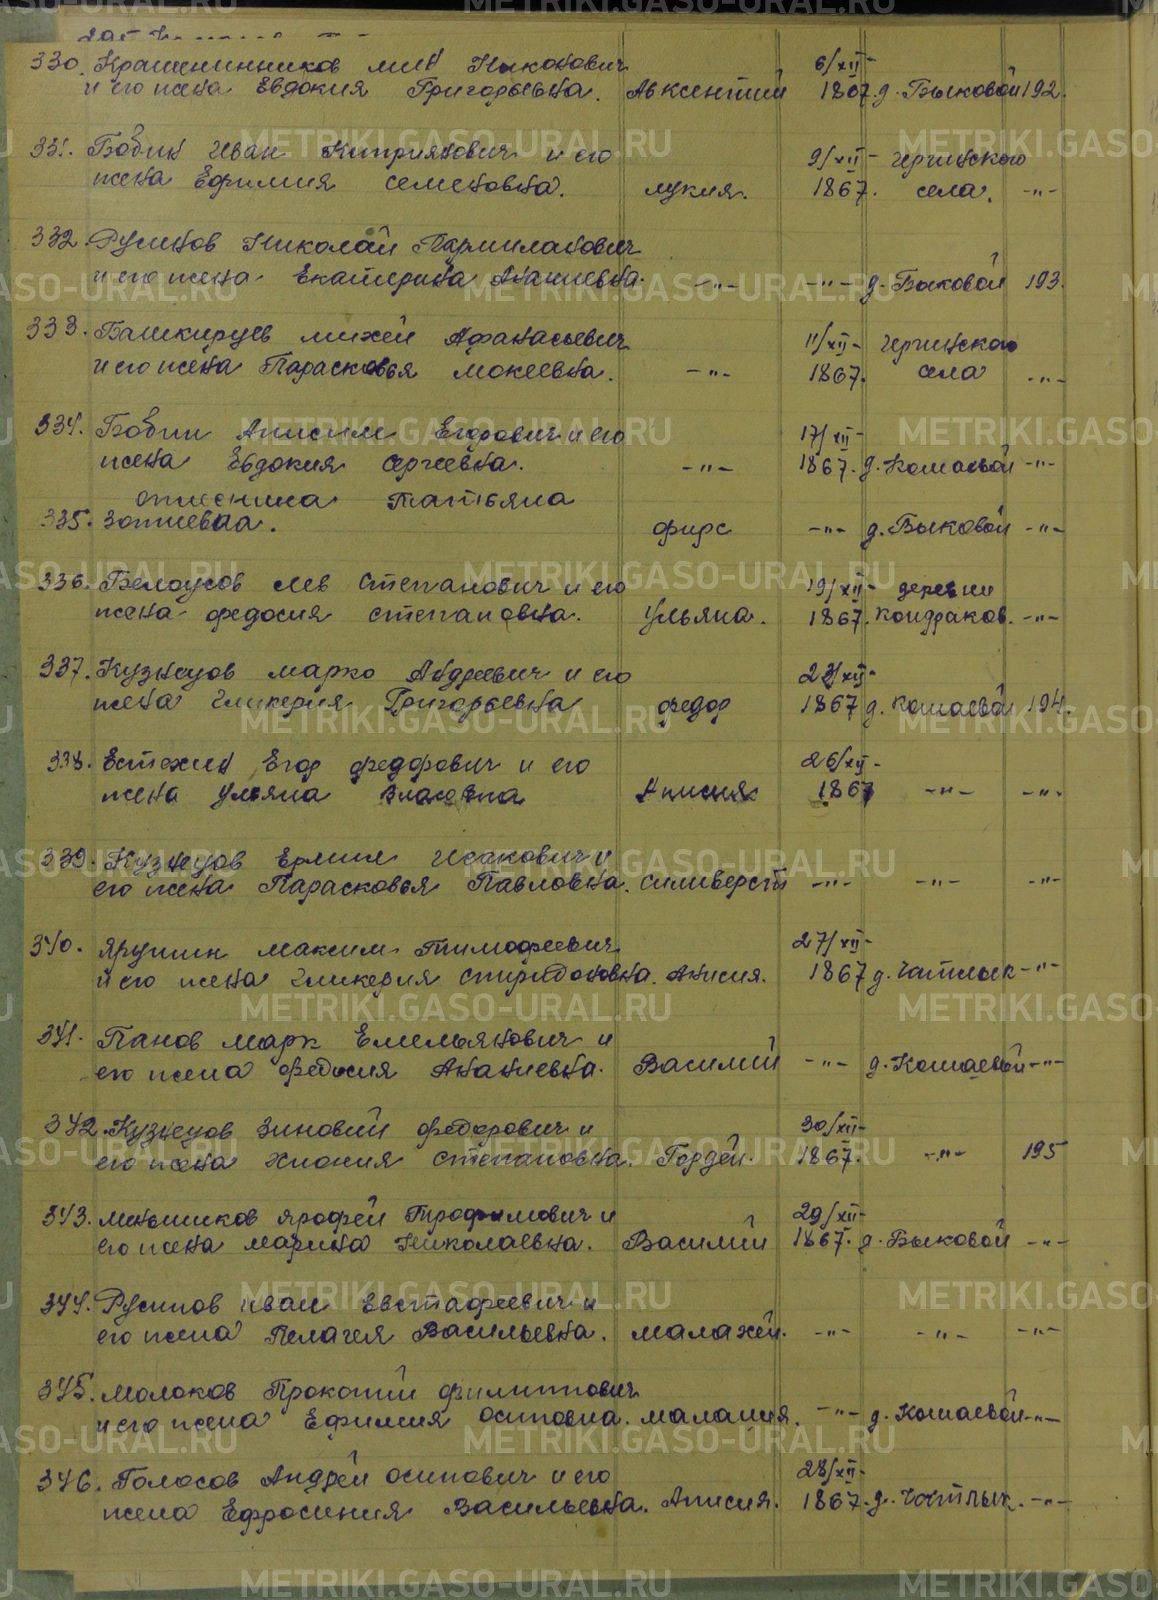 330. Крашенинников Никонович 6/XII-
и его жена Евдокия Григорьевна. Авксентий 1867. д. Быковой 192.
331. Бабин Иван Киприянович и его 9/XII- Чернинского
жена Ефимия Семеновна. Лукия. 1867. села. -"-
332. Русинов Николай Пармиланович
и его жена Екатерина Ананиевна. -"- -"- д. Быковой 193.
333. Башкирцев Михей Афанасьевич 11/XII- Чернинского
и его жена Парасковья Мокеевна. -"- 1867. села -"-
334. Бабин Анисим Егорович и его 17/XII-
жена Евдокия Сергеевна. -"- 1867. д. Кошаевой -"-
Татьяна
335. Зотиевна. Фирс -"- д. Быковой -"-
336. Белоусов Лев Степанович и его 19/XII- деревни
жена Федосия Степановна. Ульяна. 1867. Кондраков. -"-
337. Кузнецов Марко Андреевич и его 23/XII-
жена Гликерия Григорьевна Федор 1867 д. Кошаевой 194.
338. Естехин Егор Федорович и его 26/XII-
жена Ульяна Власовна Анисия 1867 -"- -"-
339. Кузнецов Ермил Исакович и
его жена Парасковья Павловна. Силиверст -"- -"- -"-
340. Ярушин Максим Тимофеевич 27/XII-
и его жена Гликерия Спиридоновна. Анисия. 1867 д. Чатлык -"-
341. Панов Марк Емельянович и
его жена Федосия Ананиевна. Василий -"- д. Кошаевой -"-
342. Кузнецов Зиновий Федорович и 30/XII-
его жена Хиония Степановна. Гордей. 1867. -"- 195
343. Меньшиков Ярофей Трофимович и 29/XII-
его жена Марина Николаевна. Василий 1867. д. Быковой -"-
344. Русинов Иван Евстафеевич и
его жена Пелагея Васильевна. Малахей. -"- -"- -"-
345. Молоков Прокопий Филиппович
и его жена Ефимия Осиповна. Малания. -"- д. Кошаевой -"-
346. Голосов Андрей Осипович и его 28/XII-
жена Ефросиния Васильевна. Анисия. 1867. д. Чатлык. -"-
METRIKI.GASO-URAL.RU